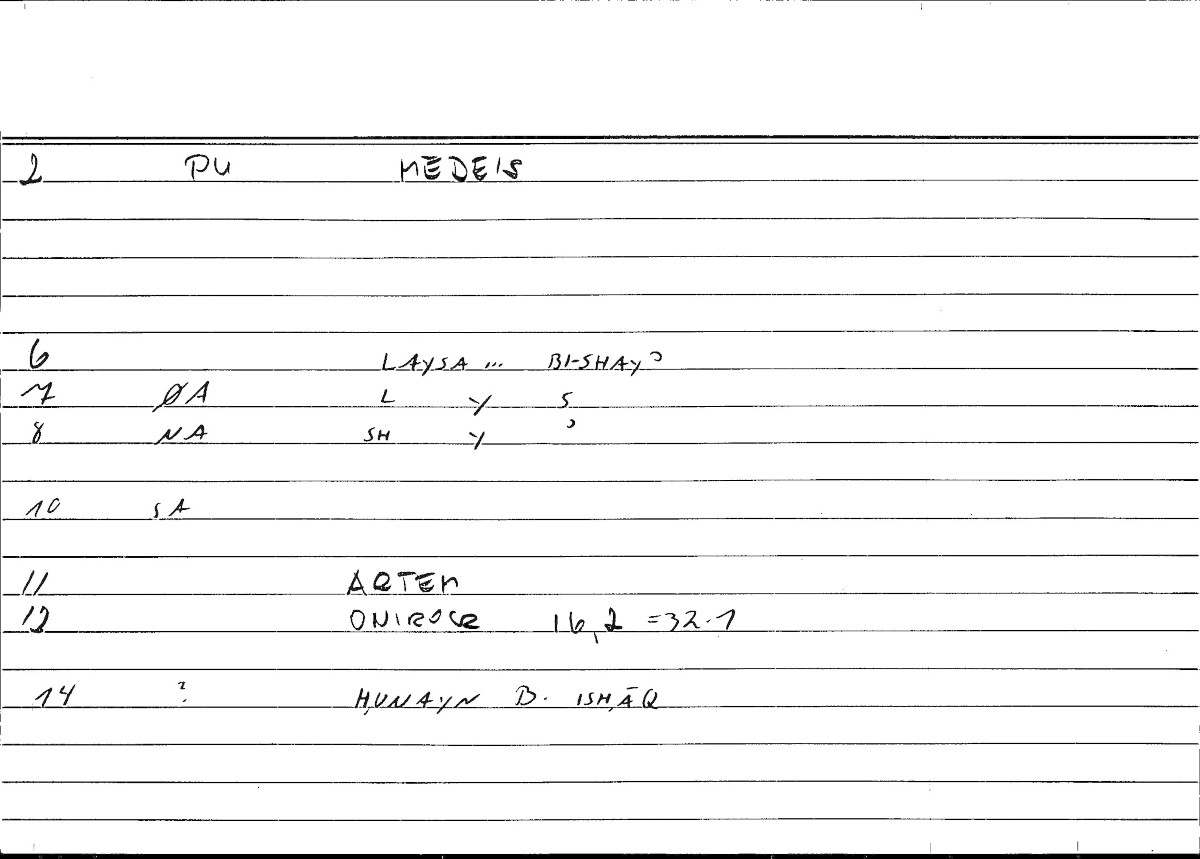 2 PU MEDEIS
6 LAYSA ... BI-SHAYʾ
7 ØA L Y S
8 NA SH Y ʾ
10 SA
11 ARTEM
12 ONIROCR 16,2 =32.1
14 ? ḤUNAYN B. ISḤĀQ